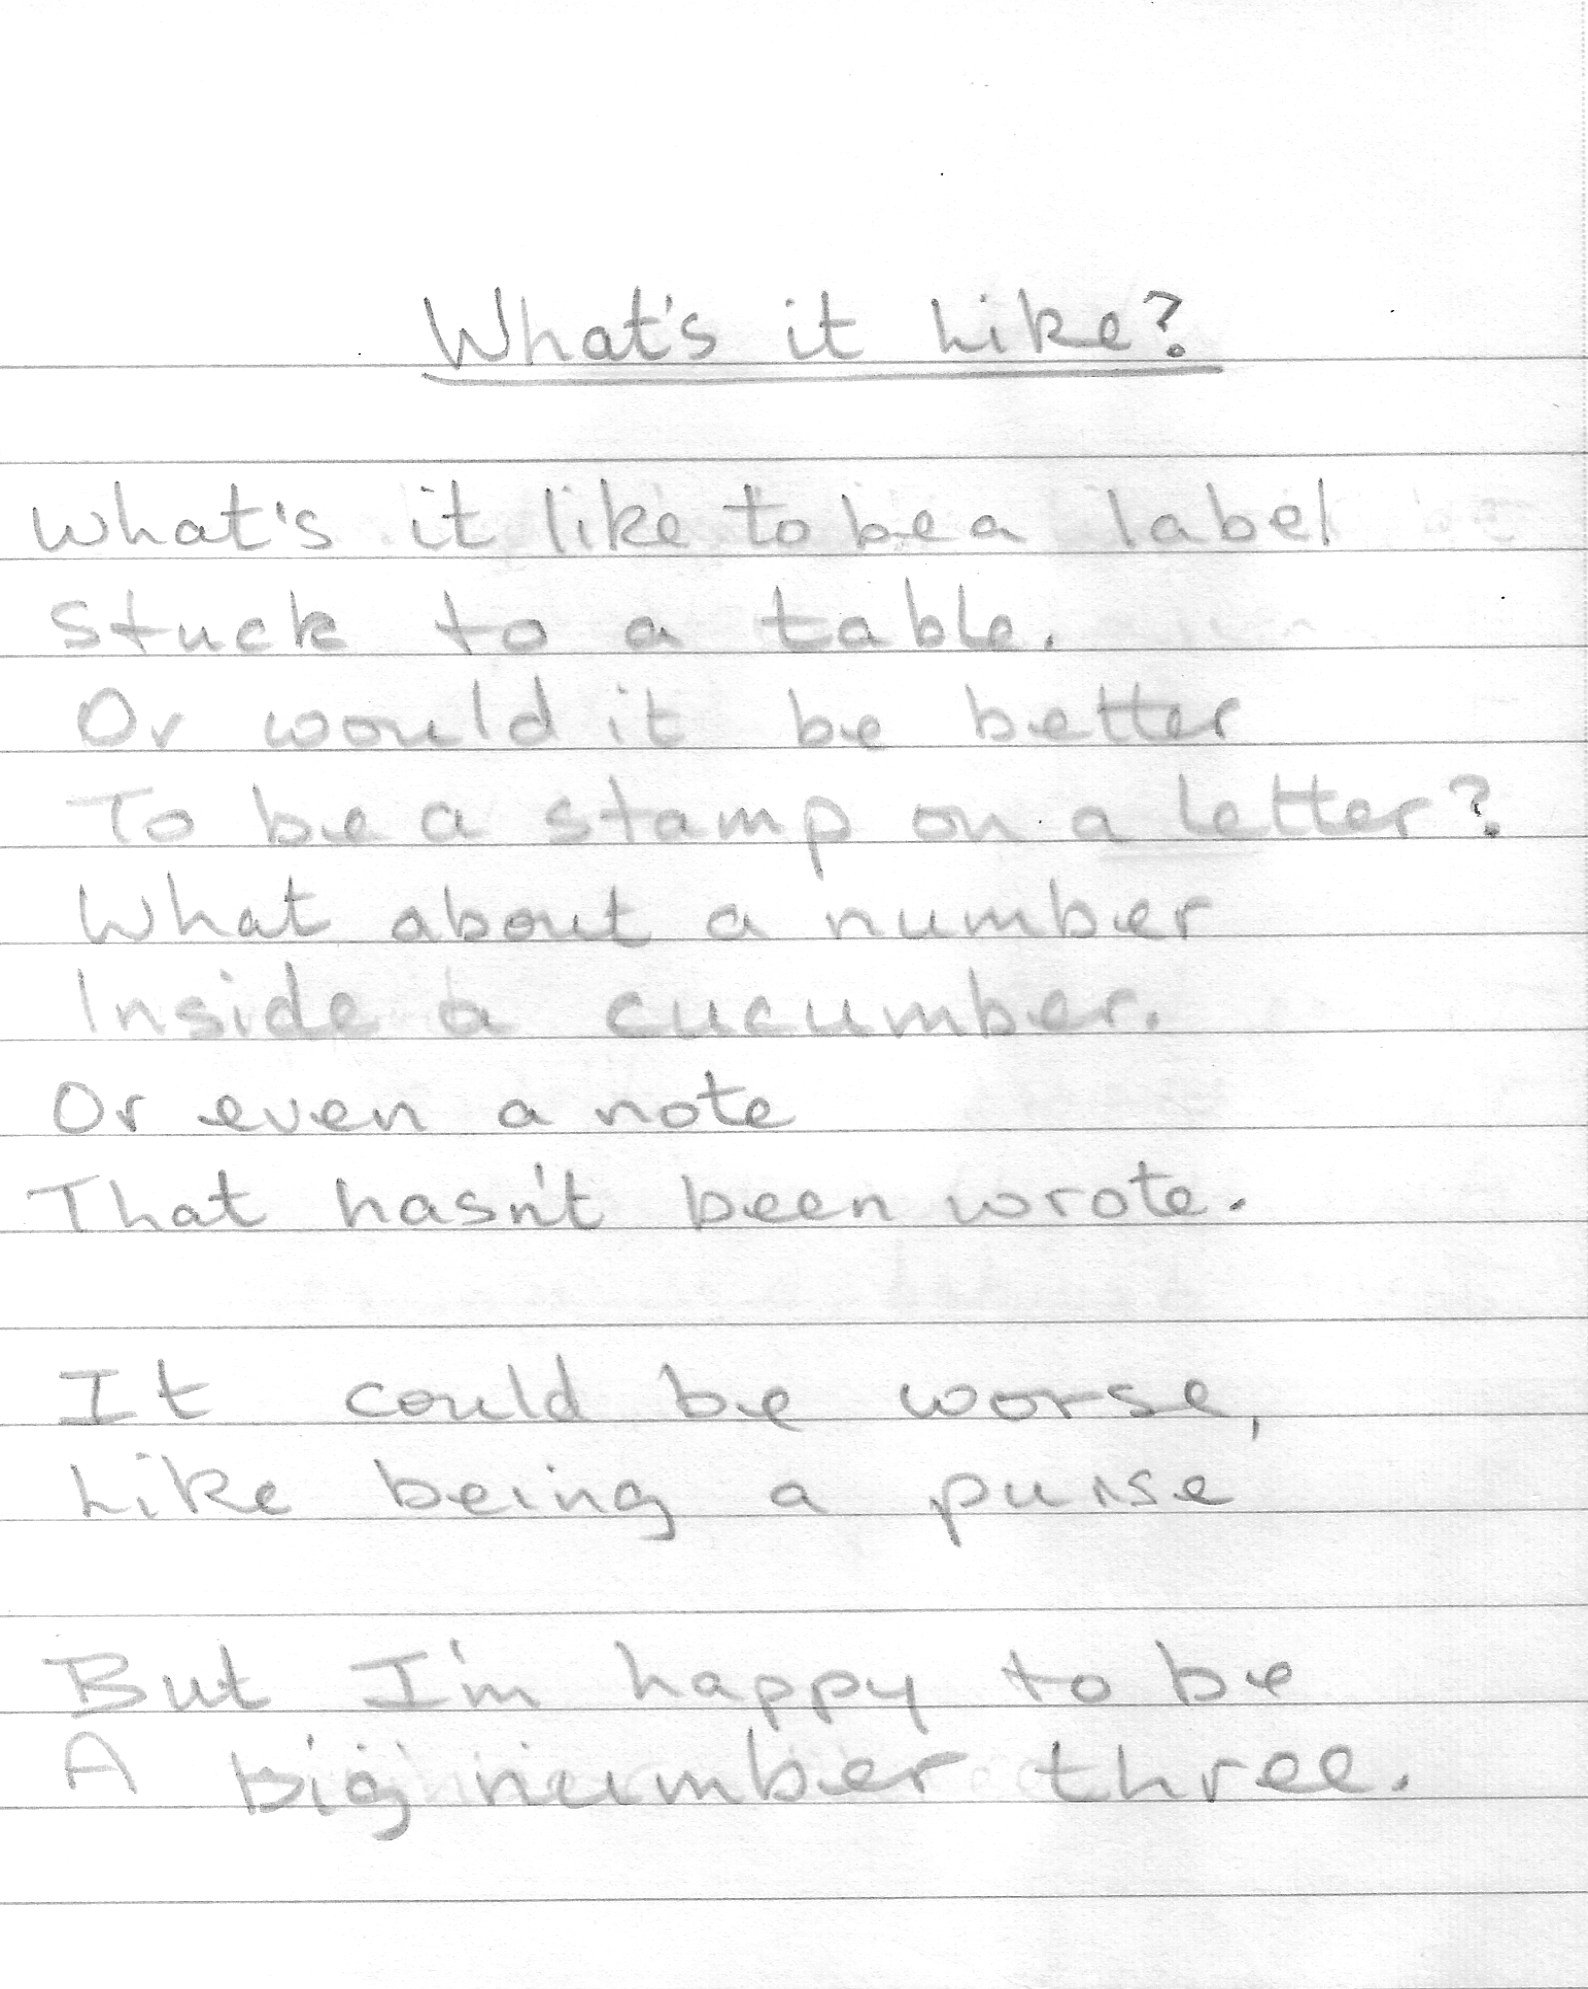 What's it Like?
What's it like to be a label
Stuck to a table.
Or would it be better
To be a stamp on a letter?
What about a number
Inside a cucumber.
Or even a note
That hasn't been wrote.
It could be worse,
Like being a purse
But I'm happy to be
A big number three.